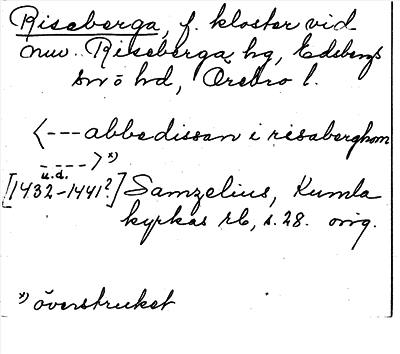 Riseberga, f. kloster vid
nuv. Riseberga hg, Edsbergs
sn o hd, Örebro l.
<---abbedissan i risaberghom
----> x)
u.d.
[1432-1441?] Samzelius, Kumla
kyrkas rb, s. 28. orig.
x) överstruket